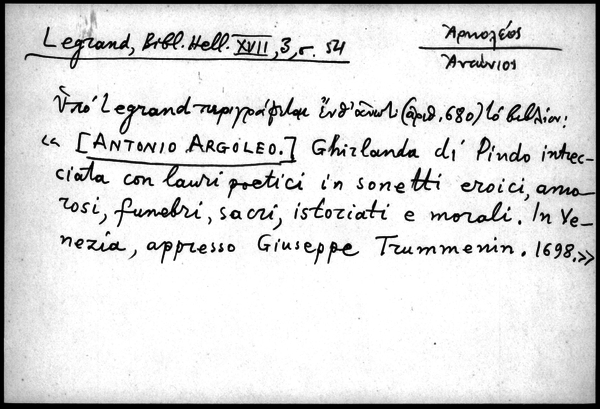 Legrand, Bibl. Hell. XVII, 3, σ. 54
Ἀργολέος
Ἀντώνιος
Ὑπὸ Legrand περιγράφεται ἔνθ' ἀνωτ. (ἀριθ. 680) τὸ βιβλίον:
«[ANTONIO ARGOLEO.] Ghirlanda di Pindo intrec-
ciata con lauri poetici in sonetti eroici, amo-
rosi, funebri, sacri, istoriati e morali. In Ve-
nezia, appresso Giuseppe Trummenin. 1698.»